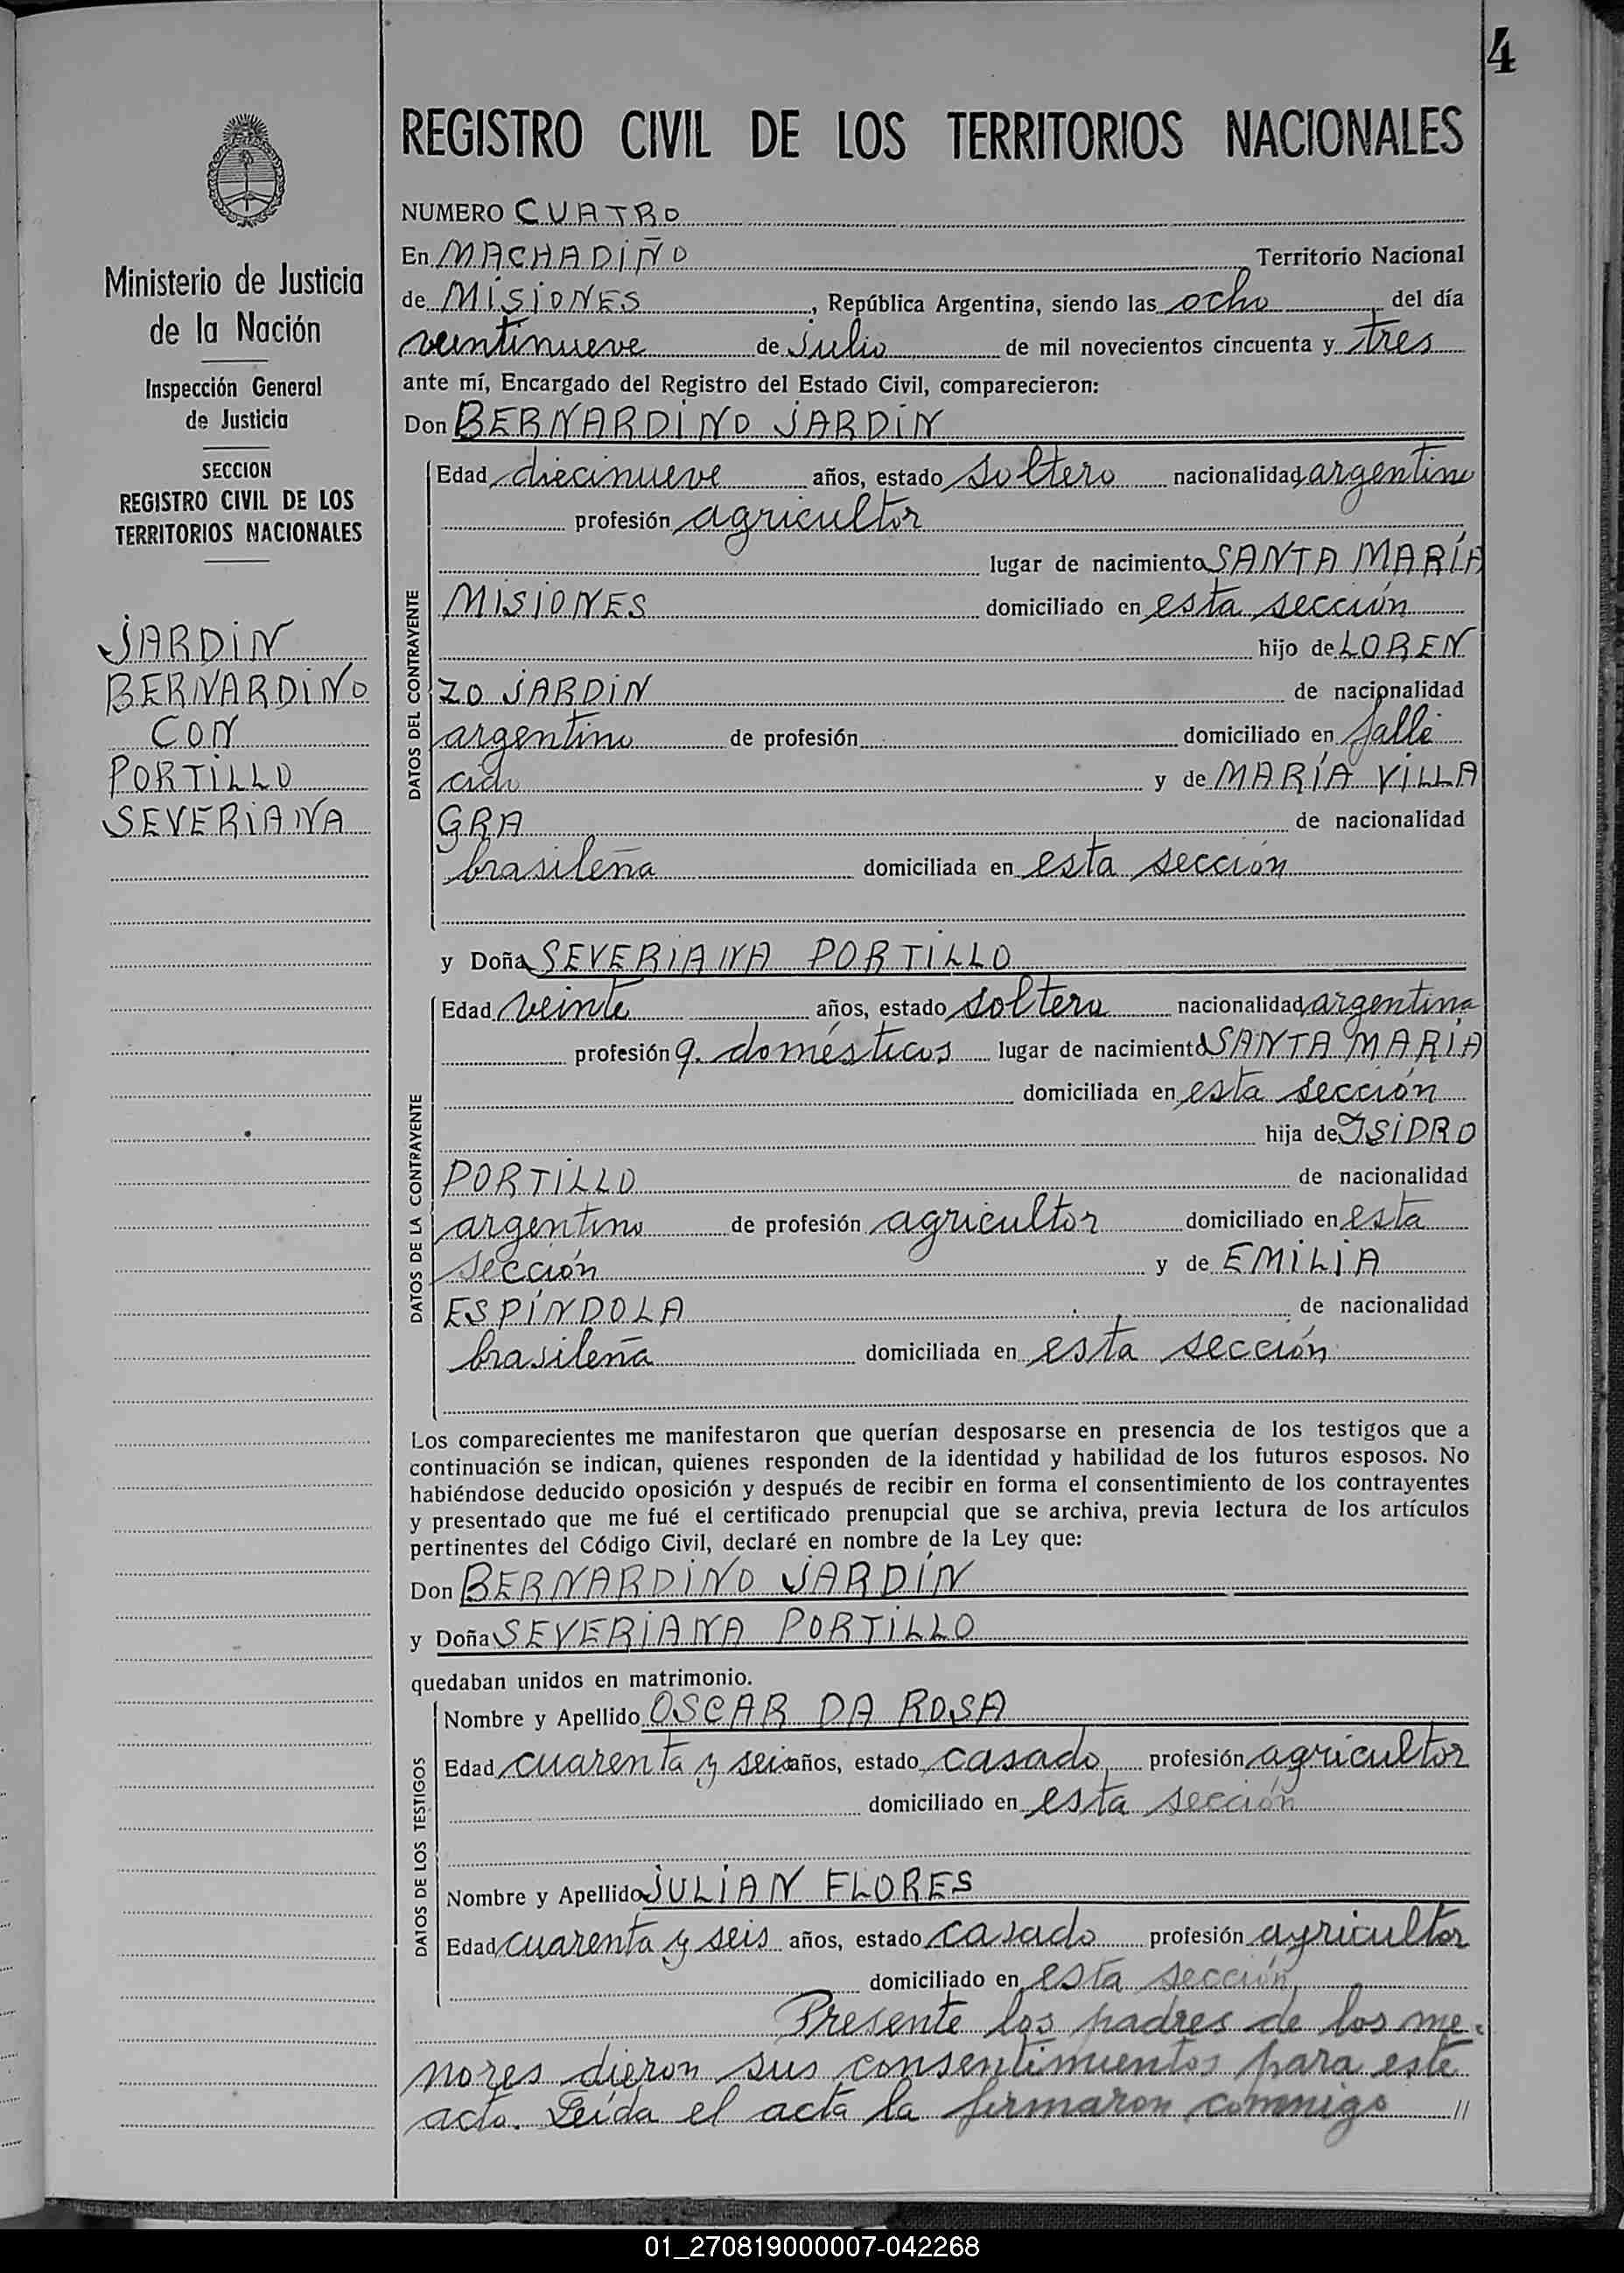 4
REGISTRO CIVIL DE LOS TERRITORIOS NACIONALES
Ministerio de Justicia
de la Nación
Inspección General
de Justicia
SECCION
REGISTRO CIVIL DE LOS
TERRITORIOS NACIONALES
JARDIN
BERNARDINO
CON
PORTILLO
SEVERIANA
NUMERO CUATRO
En MACHADIÑO Territorio Nacional
de MISIONES, República Argentina, siendo las ocho del día
veintinueve de julio de mil novecientos cincuenta y tres
ante mí, Encargado del Registro del Estado Civil, comparecieron:
Don BERNARDINO JARDIN
DATOS DEL CONTRAYENTE
Edad diecinueve años, estado soltero nacionalidad argentino
profesión agricultor
lugar de nacimiento SANTA MARÍA
MISIONES domiciliado en esta sección
hijo de LOREN
ZO JARDIN de nacionalidad
argentino de profesión domiciliado en falle
cido y de MARÍA VILLA
GRA de nacionalidad
brasileña domiciliada en esta sección
y Doña SEVERIANA PORTILLO
DATOS DE LA CONTRAYENTE
Edad veinte años, estado soltera nacionalidad argentina
profesión q. domésticos lugar de nacimiento SANTA MARÍA
domiciliada en esta sección
hija de ISIDRO
PORTILLO de nacionalidad
argentino de profesión agricultor domiciliado en esta
sección y de EMILIA
ESPÍNDOLA de nacionalidad
brasileña domiciliada en esta sección
Los comparecientes me manifestaron que querían desposarse en presencia de los testigos que a
continuación se indican, quienes responden de la identidad y habilidad de los futuros esposos. No
habiéndose deducido oposición y después de recibir en forma el consentimiento de los contrayentes
y presentado que me fué el certificado prenupcial que se archiva, previa lectura de los artículos
pertinentes del Código Civil, declaré en nombre de la Ley que:
Don BERNARDINO JARDÍN
y Doña SEVERIANA PORTILLO
quedaban unidos en matrimonio.
DATOS DE LOS TESTIGOS
Nombre y Apellido OSCAR DA ROSA
Edad cuarenta y seis años, estado casado profesión agricultor
domiciliado en esta sección
Nombre y Apellido JULIAN FLORES
Edad cuarenta y seis años, estado casado profesión agricultor
domiciliado en esta sección
Presente los padres de los me-
nores dieron sus consentimientos para este
acto. Leída el acta la firmaron conmigo //
01_270819000007-042268